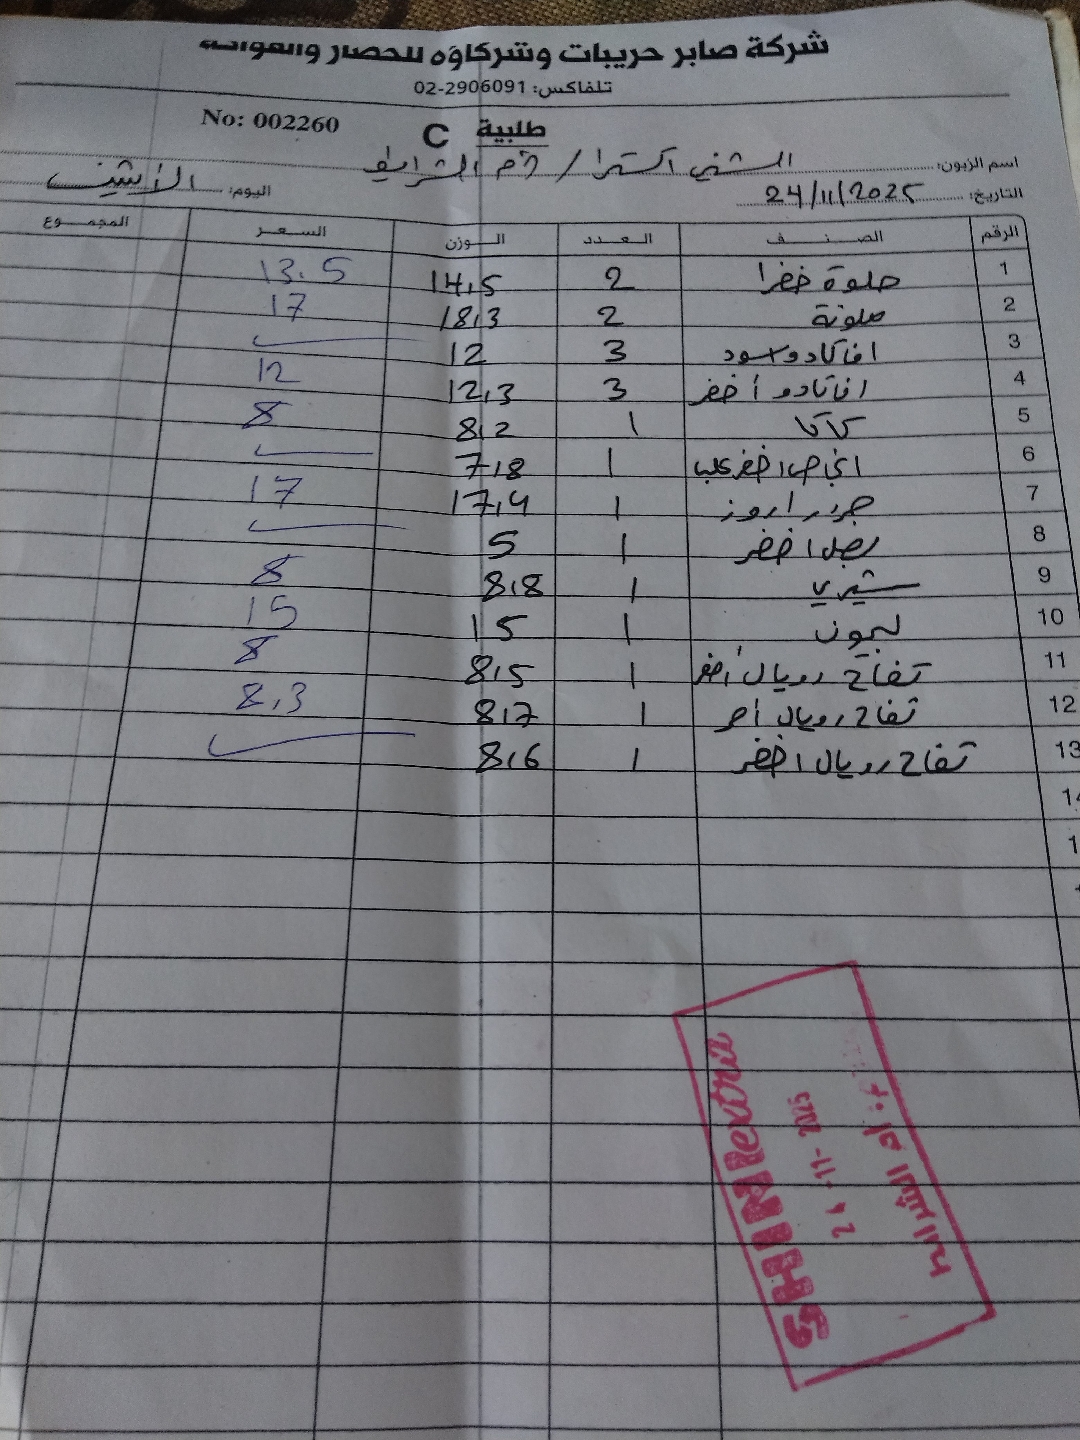 شركة صابر حريبات وشركاؤه للخضار والفواكه
تلفاكس: 02-2906091
No: 002260
طلبية C
اسم الزبون: الشني اكسترا / ام الشرايط
التاريخ: 24/11/2025 اليوم: الاثنين
الرقم الصنف العدد الوزن السعر المجموع
1 حلوة خضرا 2 14,5 13.5
2 ملونة 2 18,3 17
3 افاكادو اسود 3 12
4 افاكادو اخضر 3 12,3 12
5 كاكا 1 8,2 8
6 1 7,8
7 1 17,4 17
8 بصل اخضر 1 5
9 شيري 1 8,8 8
10 ليمون 1 15 15
11 تفاح رويال اخضر 1 8,5 8
12 تفاح رويال احمر 1 8,7 8,3
13 تفاح رويال اخضر 1 8,6
SHINI extra
24-11-2025